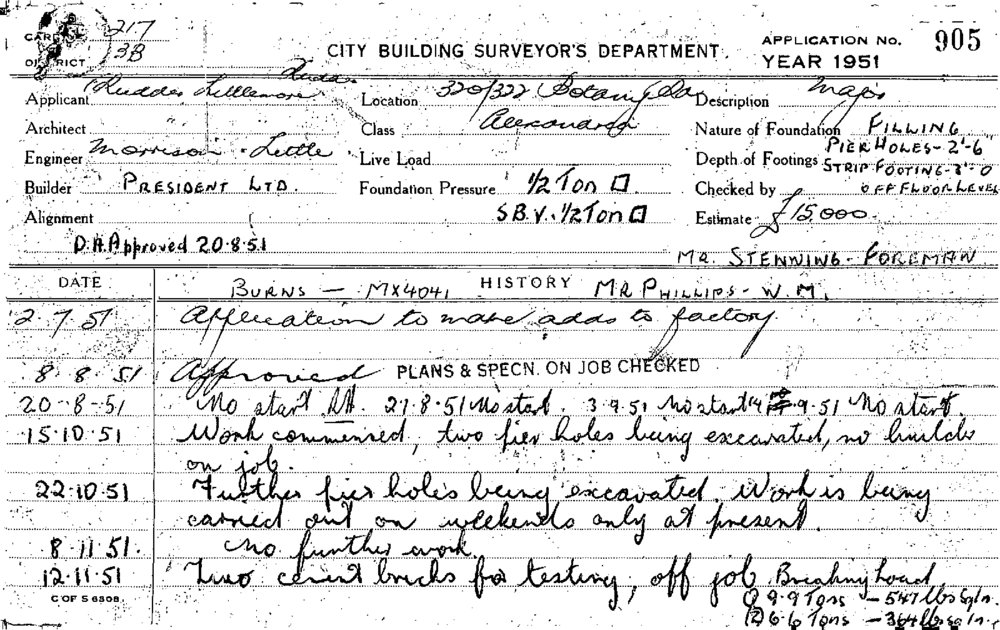 217
CARD No. 3B
DISTRICT
CITY BUILDING SURVEYOR'S DEPARTMENT
APPLICATION No. 905
YEAR 1951
Applicant Rudder Littlemore Rudder
Location 320/322 Botany Rd
Description Major
Architect " " "
Class Alexandria
Nature of Foundation FILLING
Engineer Morrison & Little
Live Load
Depth of Footings PIER HOLES - 2'-6
STRIP FOOTING - 3'-0
OFF FLOOR LEVEL
Builder PRESIDENT LTD.
Foundation Pressure 1/2 Ton □
Checked by
Alignment
S.B.V. 1/2 Ton □
Estimate £15,000.
D.A. Approved 20.8.51
MR. STENNING - FOREMAN
DATE
HISTORY
BURNS — MX4041
MR PHILLIPS - W.M.
2.7.51 Application to make adds to factory
8.8.51 Approved PLANS & SPECN. ON JOB CHECKED
20-8-51 No start RH. 27.8.51 No start. 3.9.51 No start .9.51 No start.
15.10.51 Work commenced, two pier holes being excavated, no builder
on job.
22.10.51 Further pier holes being excavated. Work is being
carried out on weekends only at present.
8.11.51. No further work.
12.11.51 Two cement bricks for testing, off job Breaking Load
① 9.9 Tons — 547 lbs sq in.
② 6.6 Tons — 364 lbs sq in.
C OF S 6308